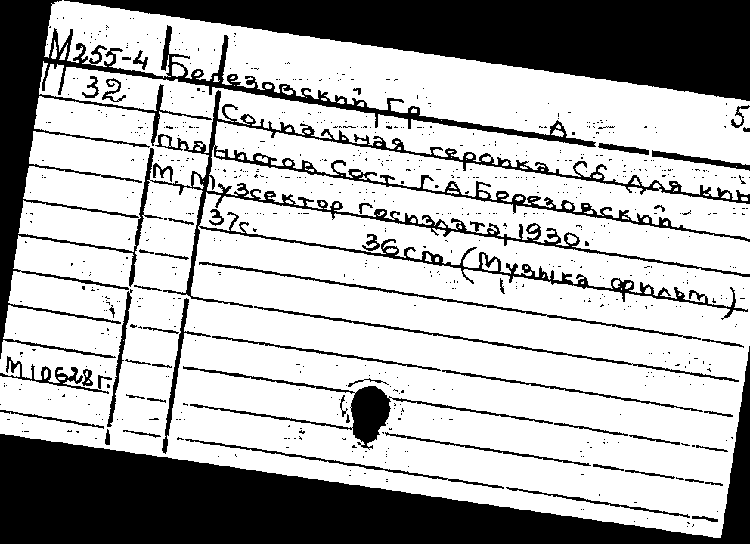 М255-4 Березовский, Гр. А. 5.
32
Социальная героика. Сб. для кин
пианистов. Сост. Г.А.Березовский.
М, Музсектор Госиздата, 1930.
37с. 36cm. (Музыка фильм.)
М10628г.